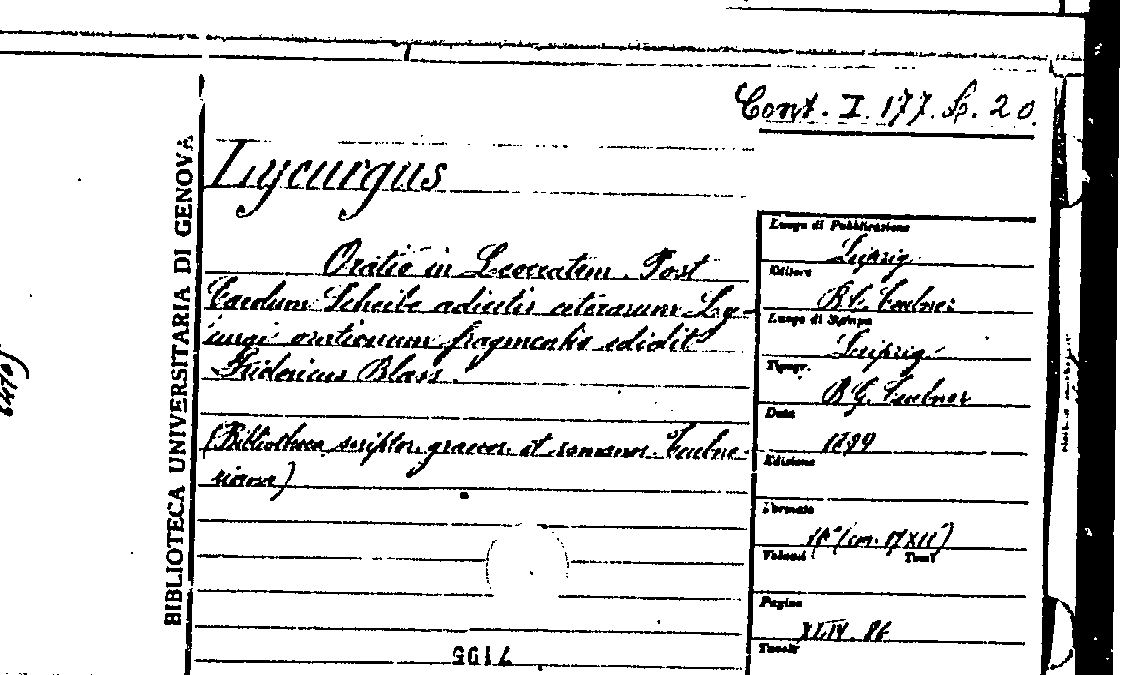 Cont. I. 177. Sc. 20.
BIBLIOTECA UNIVERSITARIA DI GENOVA
Lycurgus
Oratio in Leocratem. Post
Carolum Scheibe adiectis ceterarum Ly-
curgi orationum fragmentis edidit
Fridericus Blass.
(Bibliotheca scriptor. graecor. et romanor. Teubne-
riana)
7195
Luogo di Pubblicazione
Leipzig
Editore
B. G. Teubner
Luogo di Stampa
Leipzig
Tipogr.
B. G. Teubner
Data
1899
Edizione
Formato
16° (cm. 17X11)
Volumi Tomi
Pagine
XLIV. 86